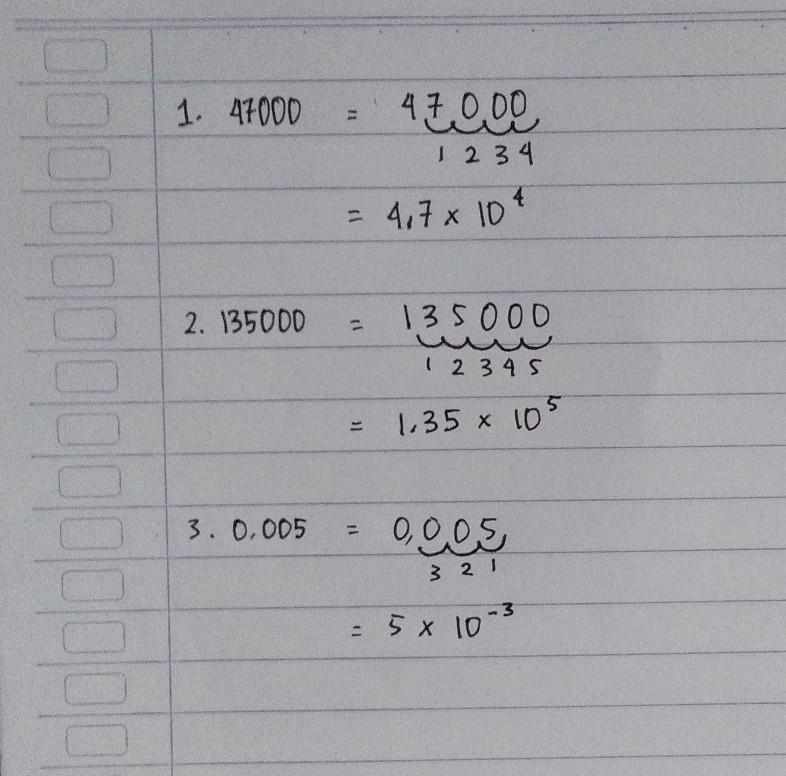 1. 47000 = 47000
1 2 3 4
= 4,7 x 10⁴
2. 135000 = 135000
1 2 3 4 5
= 1,35 x 10⁵
3. 0,005 = 0,005
3 2 1
= 5 x 10⁻³